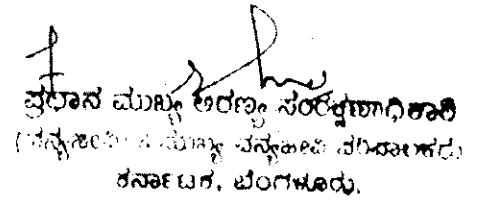 ಪ್ರಧಾನ ಮುಖ್ಯ ಅರಣ್ಯ ಸಂರಕ್ಷಣಾಧಿಕಾರಿ
(ವನ್ಯಜೀವಿ) ಮುಖ್ಯ ವನ್ಯಜೀವಿ ಪರಿಪಾಲಕರು
ಕರ್ನಾಟಕ, ಬೆಂಗಳೂರು.